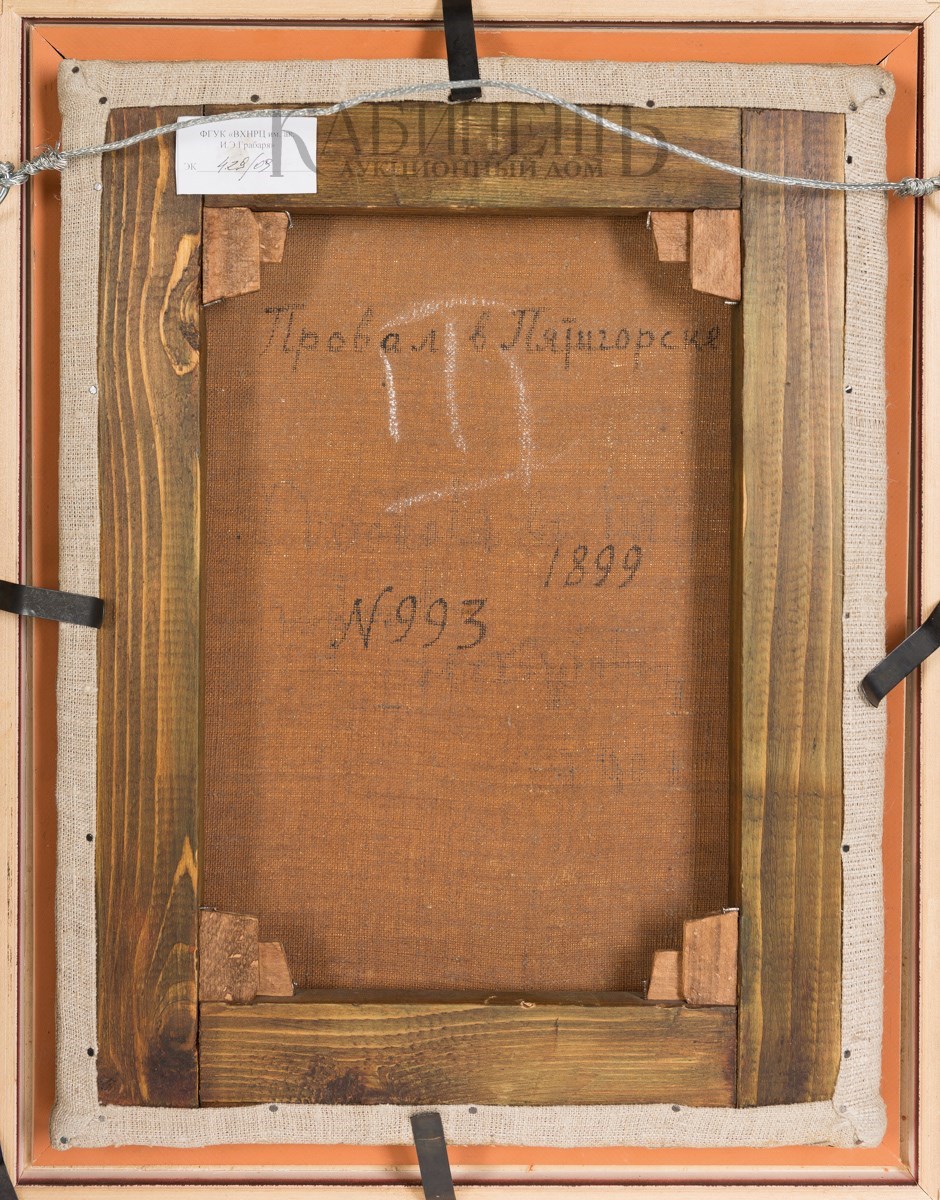 КАБИНЕТЪ
АУКЦИОННЫЙ ДОМ
ФГУК «ВХНРЦ им. ак.
И.Э.Грабаря»
ЭК 428/09
Провал в Пятигорске
III
1899
N 993